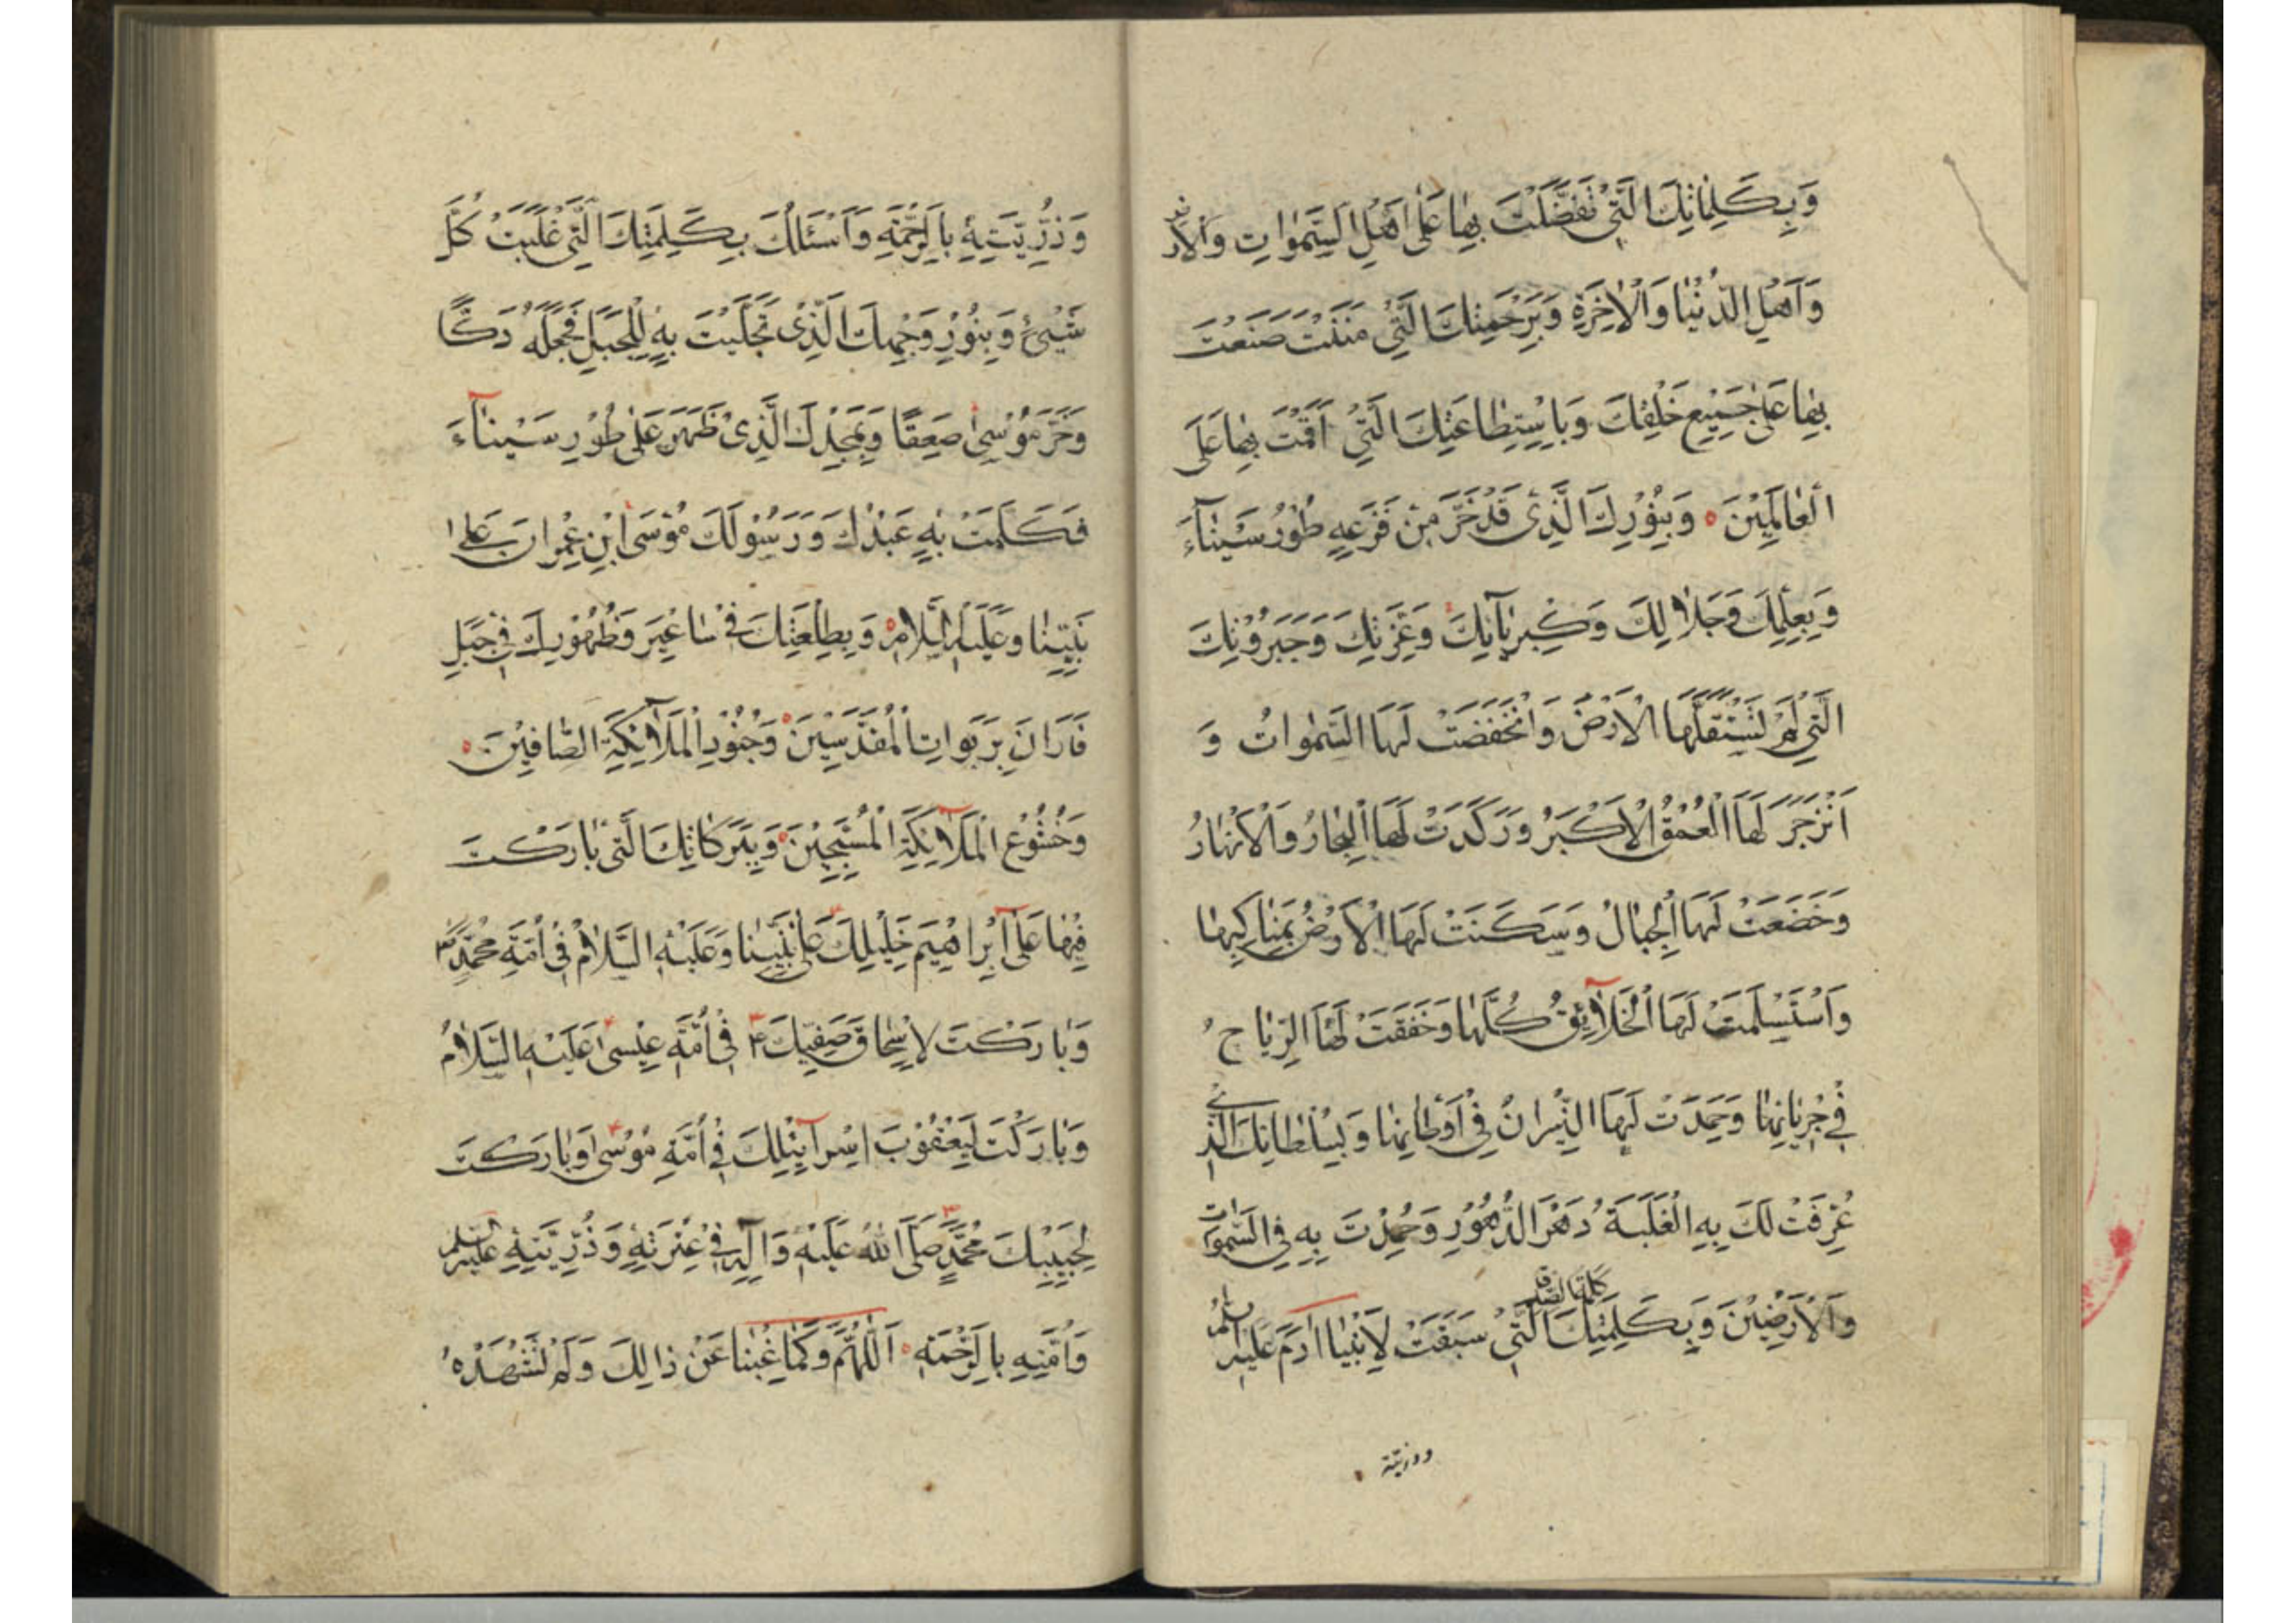 وَبِكَلِمَاتِكَ الَّتِي تَفَضَّلْتَ بِهَا عَلَى اَهْلِ السَّمٰوَاتِ وَالْاَرْضِ
وَاَهْلِ الدُّنْيَا وَالْاٰخِرَةِ وَبِرَحْمَتِكَ الَّتِي مَنَنْتَ صَنَعْتَ
بِهَا عَلٰى جَمِيْعِ خَلْقِكَ وَبِاسْتِطَاعَتِكَ الَّتِي اَقَمْتَ بِهَا عَلَى
الْعَالَمِيْنَ ۰ وَبِنُوْرِكَ الَّذِيْ قَدْ خَرَّ مِنْ فَزَعِهِ طُوْرُ سَيْنَاۤءَ
وَبِعِلْمِكَ وَجَلَالِكَ وَكِبْرِيَاۤئِكَ وَعِزَّتِكَ وَجَبَرُوْتِكَ
الَّتِي لَمْ تَسْتَقِلَّهَا الْاَرْضُ وَانْخَفَضَتْ لَهَا السَّمٰوَاتُ وَ
انْزَجَرَ لَهَا الْعُمْقُ الْاَكْبَرُ وَرَكَدَتْ لَهَا الْبِحَارُ وَالْاَنْهَارُ
وَخَضَعَتْ لَهَا الْجِبَالُ وَسَكَنَتْ لَهَا الْاَرْضُ بِمَنَاكِبِهَا
وَاسْتَسْلَمَتْ لَهَا الْخَلَاۤئِقُ كُلُّهَا وَخَفَقَتْ لَهَا الرِّيَاحُ
فِيْ جَرَيَانِهَا وَخَمَدَتْ لَهَا النِّيْرَانُ فِيْ اَوْطَانِهَا وَبِسُلْطَانِكَ الَّذِيْ
عُرِفَتْ لَكَ بِهِ الْغَلَبَةُ دَهْرَ الدُّهُوْرِ وَحُمِدْتَ بِهِ فِي السَّمٰوَاتِ
وَالْاَرَضِيْنَ وَبِكَلِمَتِكَ الَّتِي سَبَقَتْ لِاَبِيْنَا اٰدَمَ عَلَيْهِ السَّلَامُ
وذرّيّته
وَذُرِّيَّتِهِ بِالرَّحْمَةِ وَاَسْئَلُكَ بِكَلِمَتِكَ الَّتِي غَلَبَتْ كُلَّ
شَيْئٍ وَبِنُوْرِ وَجْهِكَ الَّذِيْ تَجَلَّيْتَ بِهِ لِلْجَبَلِ فَجَعَلَهُ دَكًّا
وَخَرَّ مُوْسٰى صَعِقًا وَبِمَجْدِكَ الَّذِيْ ظَهَرَ عَلٰى طُوْرِ سَيْنَاۤءَ
فَكَلَّمْتَ بِهِ عَبْدَكَ وَرَسُوْلَكَ مُوْسَى ابْنِ عِمْرَانَ عَلٰى
نَبِيِّنَا وَعَلَيْهِ السَّلَامُ وَبِطَلْعَتِكَ فِيْ سَاعِيْرَ وَظُهُوْرِكَ فِيْ جَبَلِ
فَارَانَ بِرَبَوَاتِ الْمُقَدَّسِيْنَ ۰ وَجُنُوْدِ الْمَلَاۤئِكَةِ الصَّافِّيْنَ ۰
وَخُشُوْعِ الْمَلَاۤئِكَةِ الْمُسَبِّحِيْنَ ۰ وَبِبَرَكَاتِكَ الَّتِي بَارَكْتَ
فِيْهَا عَلٰى اِبْرَاهِيْمَ خَلِيْلِكَ عَلٰى نَبِيِّنَا وَعَلَيْهِ السَّلَامُ فِيْ اُمَّةِ مُحَمَّدٍ
وَبَارَكْتَ لِاِسْحَاقَ صَفِيِّكَ فِيْ اُمَّةِ عِيْسٰى عَلَيْهِ السَّلَامُ
وَبَارَكْتَ لِيَعْقُوْبَ اِسْرَاۤئِيْلِكَ فِيْ اُمَّةِ مُوْسٰى وَبَارَكْتَ
لِحَبِيْبِكَ مُحَمَّدٍ صَلَّى اللّٰهُ عَلَيْهِ وَاٰلِهِ فِيْ عِتْرَتِهِ وَذُرِّيَّتِهِ عَلَيْهِمُ السَّلَامُ
وَاُمَّتِهِ بِالرَّحْمَةِ ۰ اَللّٰهُمَّ وَكَمَا غِبْنَا عَنْ ذَالِكَ وَلَمْ نَشْهَدْهُ